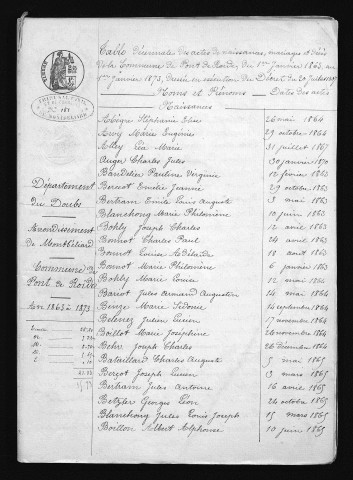 Table Décennale des actes de naissances, mariages et Décès
De la Commune de Pont de Roide, du 1er Janvier 1863 au
1er Janvier 1873, Dressée en exécution du Décret du 20 Juillet 1807
Noms et Prénoms Dates des actes
Naissances
Département
du Doubs
Arrondissement
De Montbéliard
Commune de
Pont de Roide
An 1863 à 1873
Abègre Stéphanie 26 mai 1864
Amy Marie Eugénie 29 octobre 1864
Abry Léa Marie 31 juillet 1867
Auger Charles Jules 30 janvier 1870
Baudelier Pauline Virginie 12 février 1863
Bercot Emilie Jeanne 29 octobre 1863
Bertram Emile Louis Auguste 3 mai 1863
Blanchong Marie Philomène 10 juin 1863
Bohly Joseph Charles 12 août 1863
Bonnot Charles Paul 24 août 1863
Bonnot Louise Adélaïde 18 août 1863
Bonnot Marie Philomène 6 janvier 1863
Bohly Marie Louise 12 mai 1864
Barrot Jules Armand Augustin 14 mai 1864
Beuze Marie Sidonie 14 septembre 1864
Belenez Julien Lucien 17 novembre 1864
Boillot Marie Joséphine 24 novembre 1864
Behr Joseph Charles 26 décembre 1864
Bataillard Charles Auguste 5 mai 1865
Berçot Joseph Lucien 13 mars 1865
Bertrain Jules Antoine 16 avril 1865
Betzler Georges Léon 24 octobre 1865
Blanchong Jules Louis Joseph 15 mars 1865
Boillon Albert Alphonse 10 juin 1865